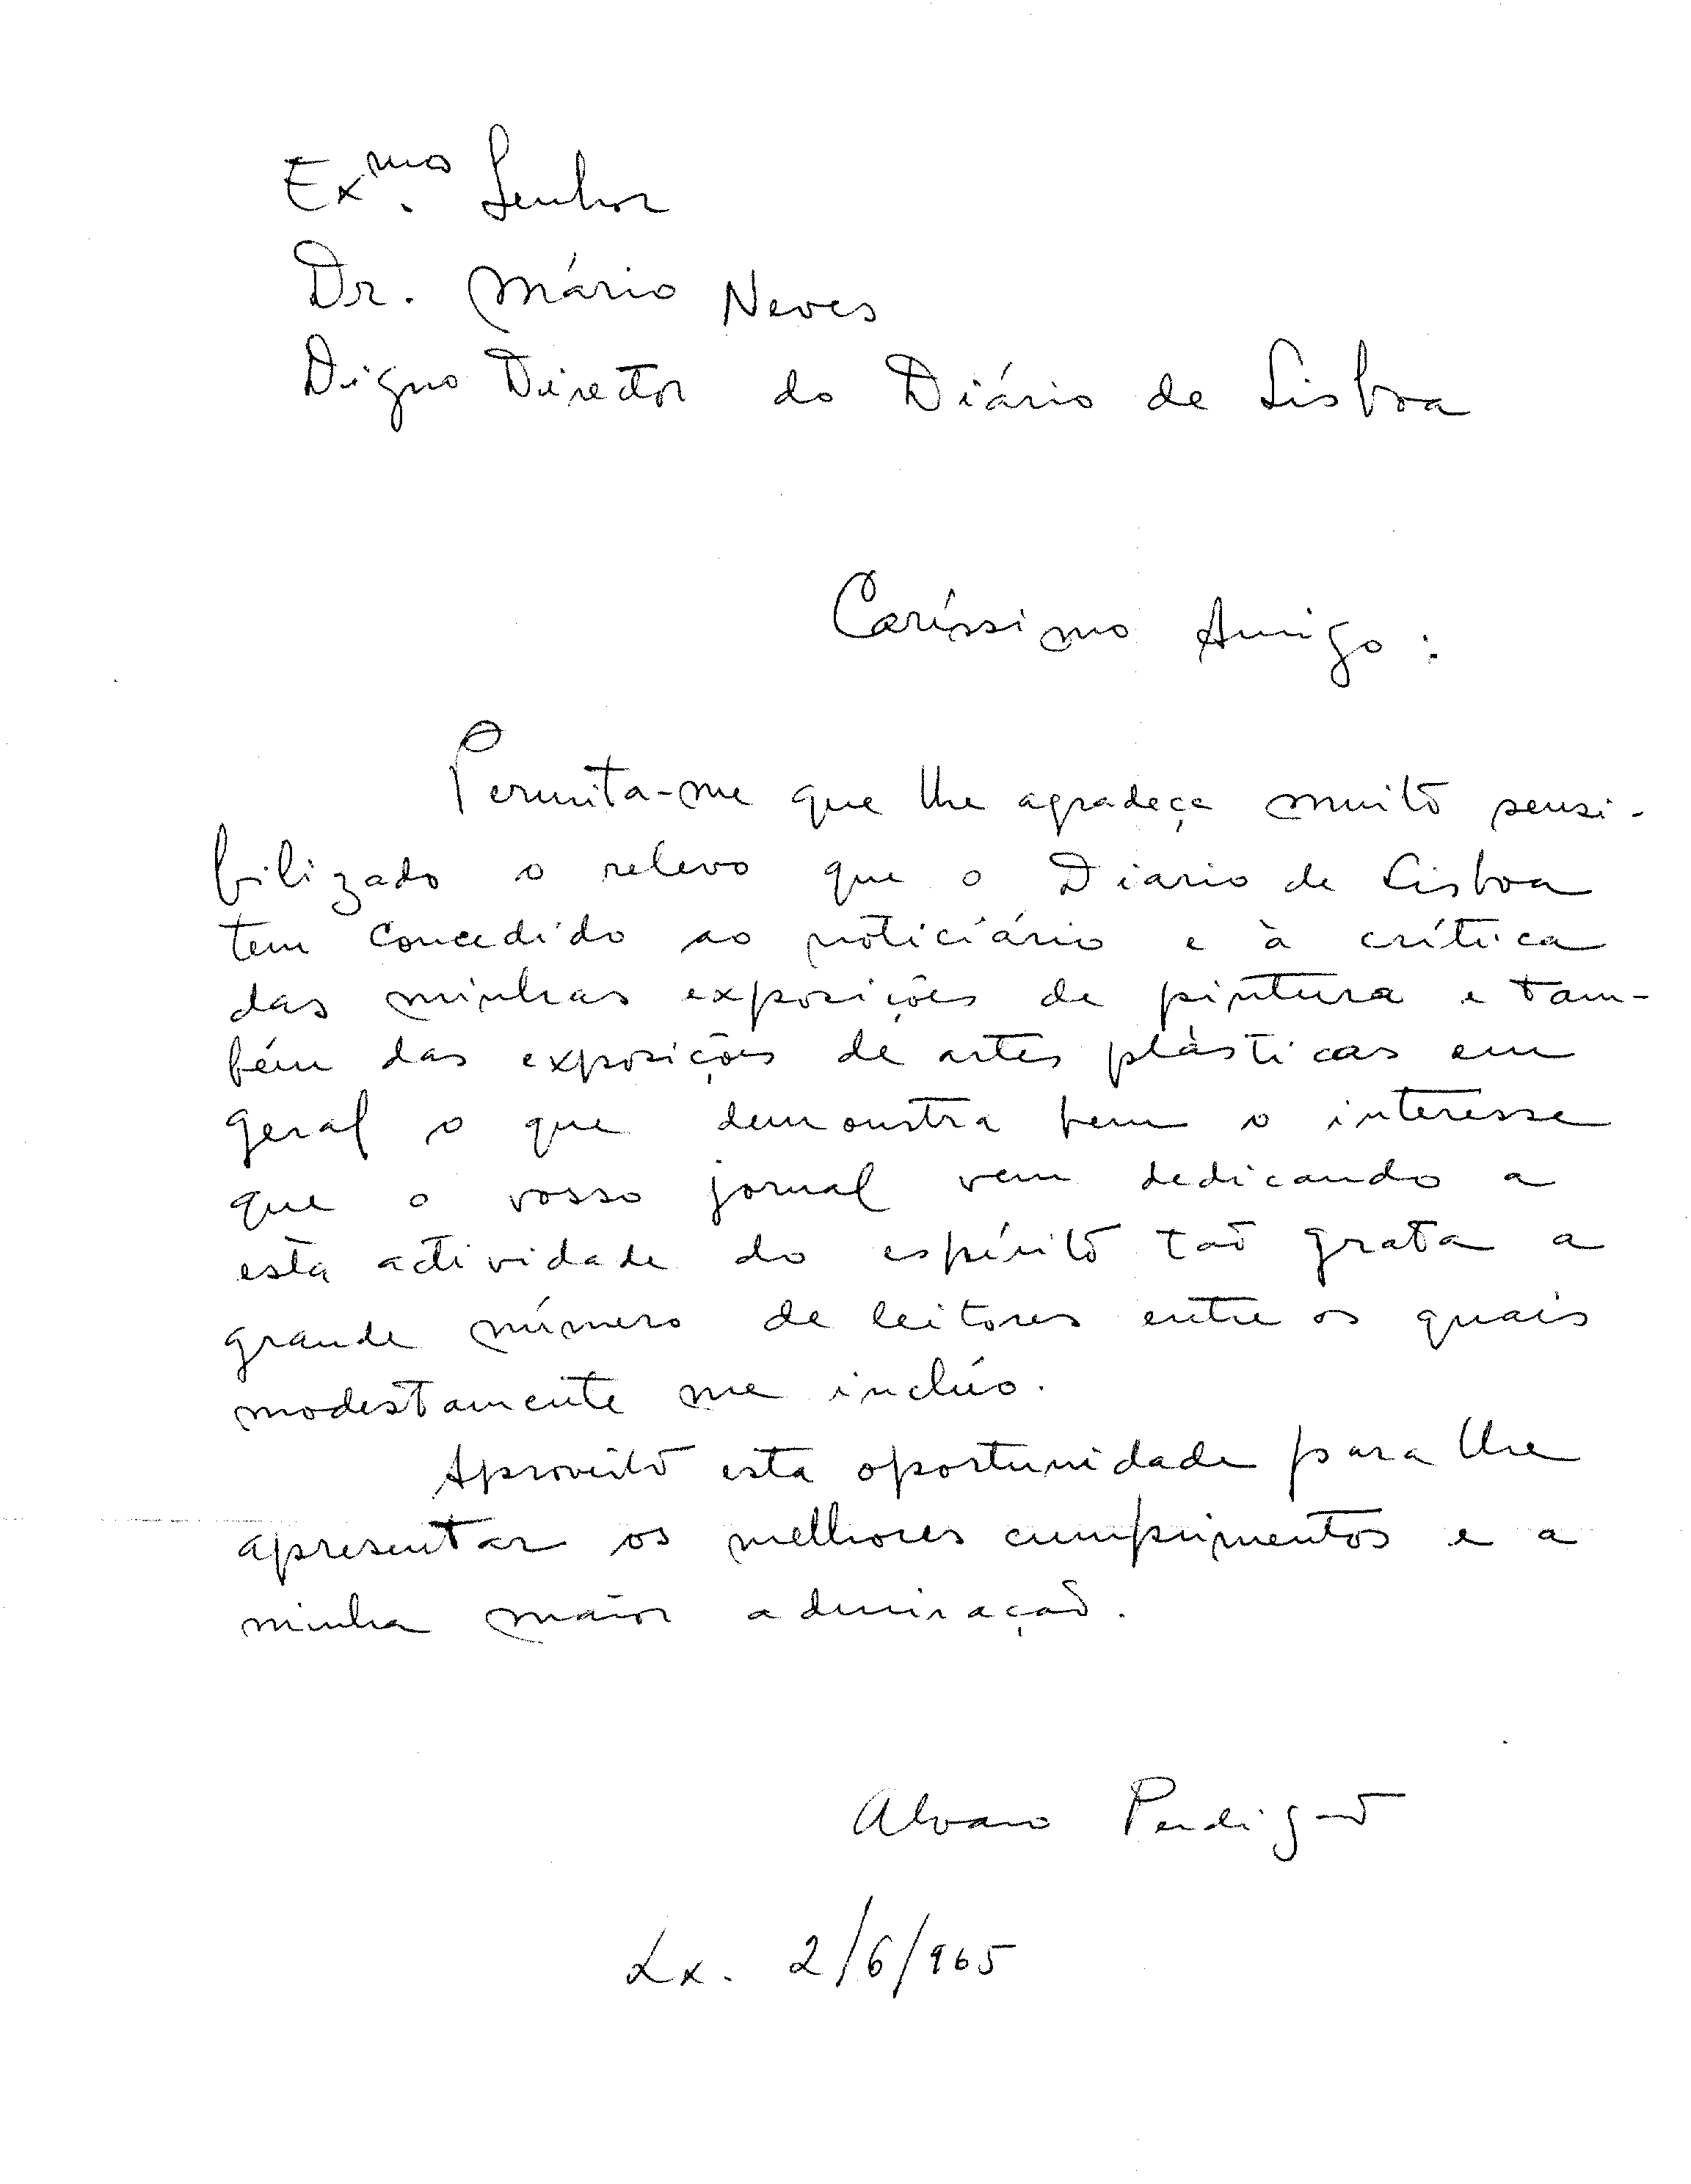 Exmo. Senhor
Dr. Mário Neves
Digno Director do Diário de Lisboa
Caríssimo Amigo:
Permita-me que lhe agradeça muito sensi-
bilizado o relevo que o Diario de Lisboa
tem concedido ao noticiário e à crítica
das minhas exposições de pintura e tam-
bém das exposições de artes plásticas em
geral o que demonstra bem o interesse
que o vosso jornal vem dedicando a
esta actividade do espírito tão grata a
grande número de leitores entre os quais
modestamente me inclúo.
Aproveito esta oportunidade para lhe
apresentar os melhores cumprimentos e a
minha maior admiração.
Alvaro Perdigão
Lx. 2/6/965